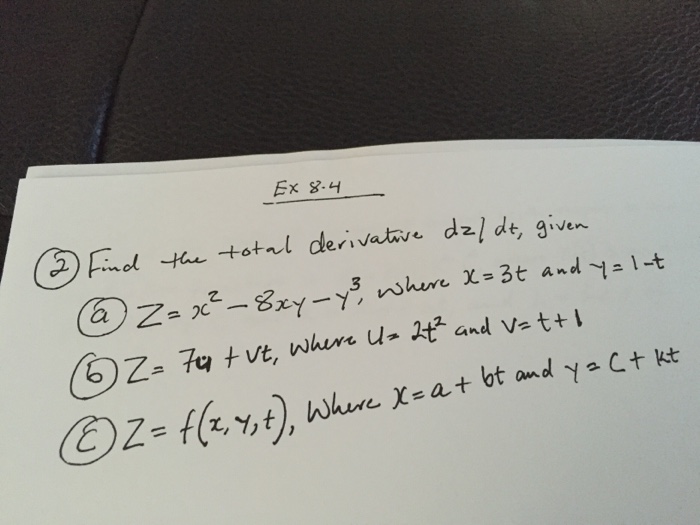 Ex 8.4
② Find the total derivative dz/dt, given
ⓐ Z = x² - 8xy - y³, where x = 3t and y = 1-t
ⓑ Z = 7u + vt, where u = 2t² and v = t+1
ⓒ Z = f(x, y, t), Where x = a + bt and y = c + kt